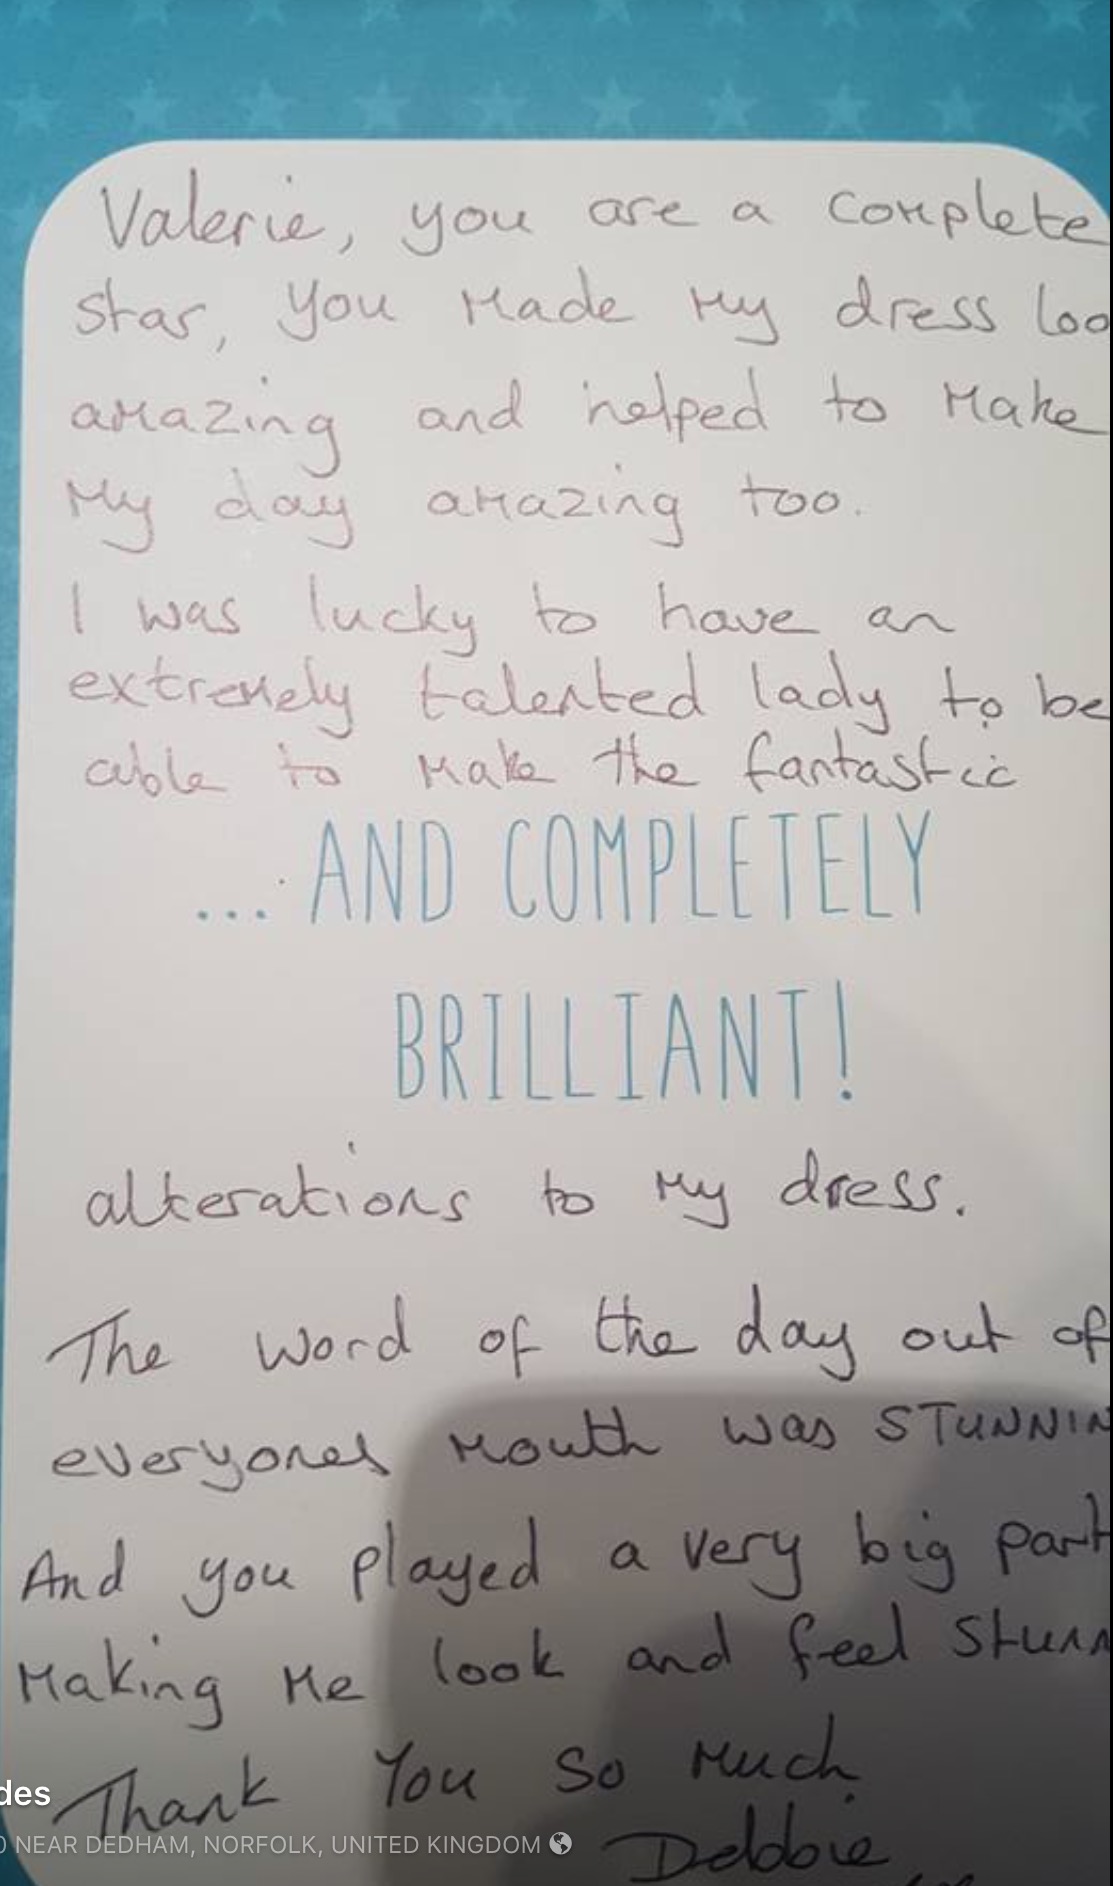 Valerie, you are a complete
star, you made my dress loo
amazing and helped to make
my day amazing too.
I was lucky to have an
extremely talented lady to be
able to make the fantastic
... AND COMPLETELY
BRILLIANT!
alterations to my dress.
The word of the day out of
everyones mouth was STUNNIN
And you played a very big part
making me look and feel stunn
Thank you so much
des
Debbie
NEAR DEDHAM, NORFOLK, UNITED KINGDOM